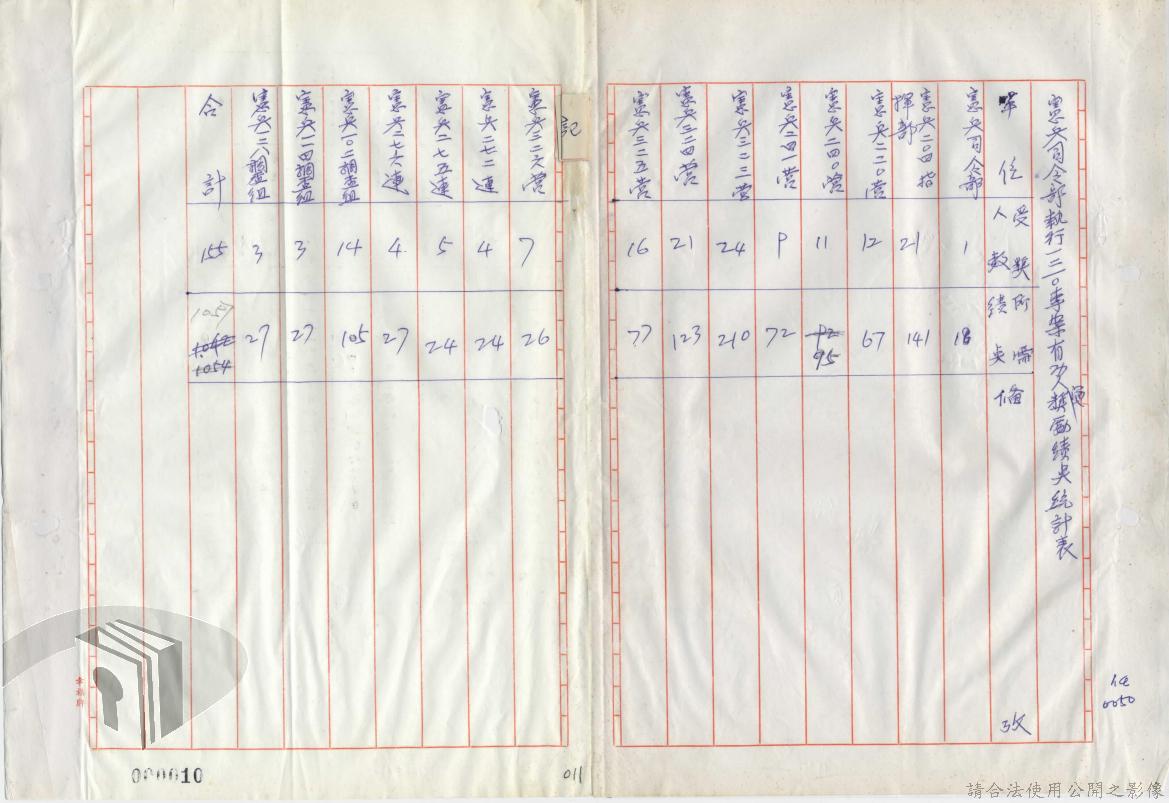 憲兵司令部執行一二一〇專案有功人員獎勵績點統計表
單位 受獎人數 所需績點 備攷
憲兵司令部 1 18
憲兵二〇四指揮部 21 141
憲兵二二〇營 12 67
憲兵二四〇營 11 92 95
憲兵二四一營 9 72
憲兵三二三營 24 210
憲兵三二四營 21 123
憲兵三二五營 16 77
憲兵三二六營 7 26
憲兵二七二連 4 24
憲兵二七五連 5 24
憲兵二七六連 4 27
憲兵一〇二調查組 14 105
憲兵一一四調查組 3 27
憲兵二八調查組 3 27
合計 155 1057 1042 1054
記
0050
000010
011
幸福牌
請合法使用公開之影像